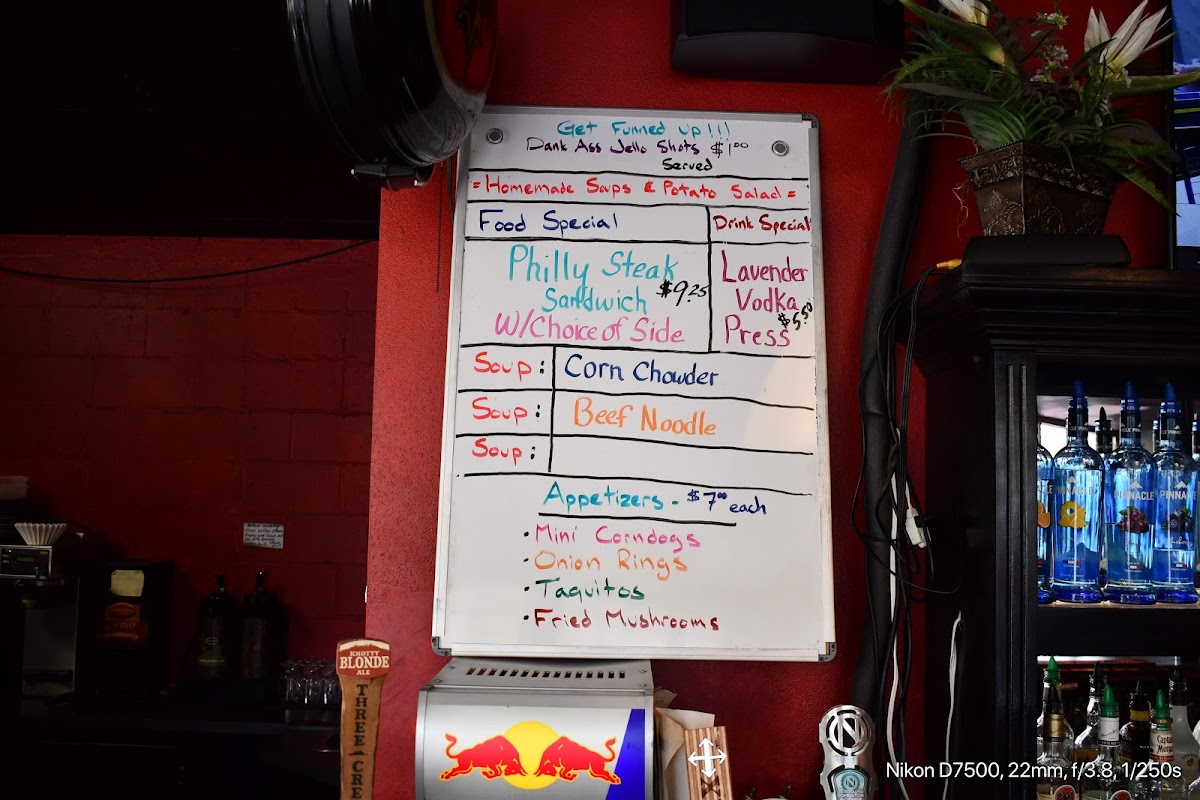 Get Funned up!!!
Dank Ass Jello Shots $1.00
Served
= Homemade Soups & Potato Salad =
Food Special
Drink Special
Philly Steak
Sandwich $9.25
W/Choice of Side
Lavender
Vodka
$5.50
Press
Soup: Corn Chowder
Soup: Beef Noodle
Soup:
Appetizers - $7.00 each
• Mini Corndogs
• Onion Rings
• Taquitos
• Fried Mushrooms
KNOTTY
BLONDE
ALE
THREE CRE
N
PINNACLE
PINNACLE
PINNACLE
Captain
Nikon D7500, 22mm, f/3.8, 1/250s